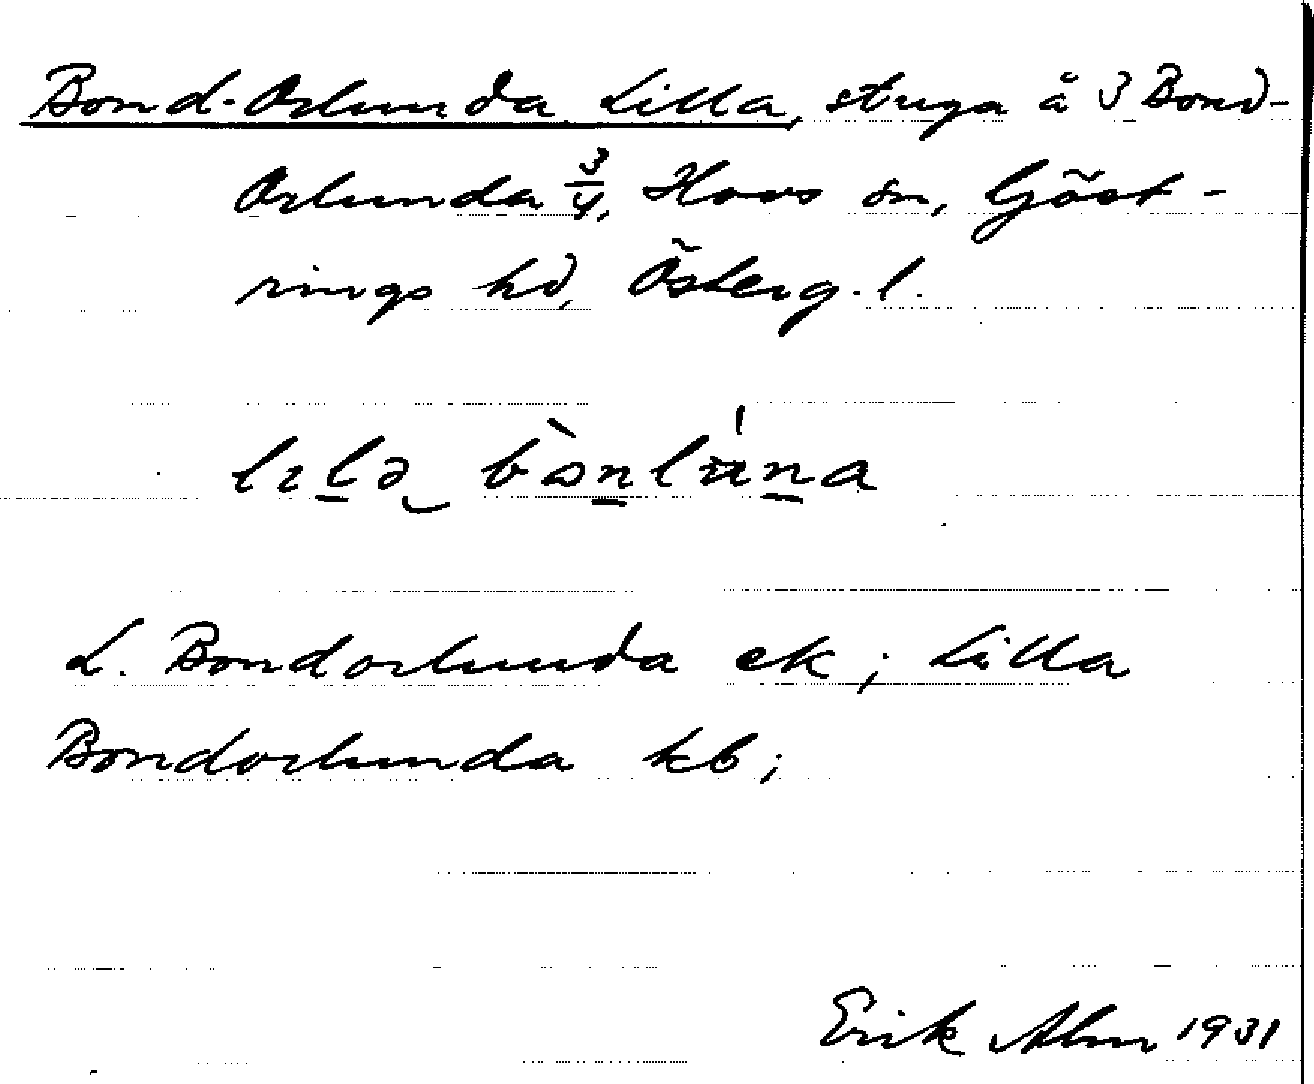 Bond-Orlunda Lilla, stuga å 3 Bond-
Orlunda 3/4, Hovs sn, Göst-
rings hd, Österg. l.
lɪlə bònlʉ́na
L. Bondorlunda ek; Lilla
Bondorlunda kb;
Erik Alm 1931